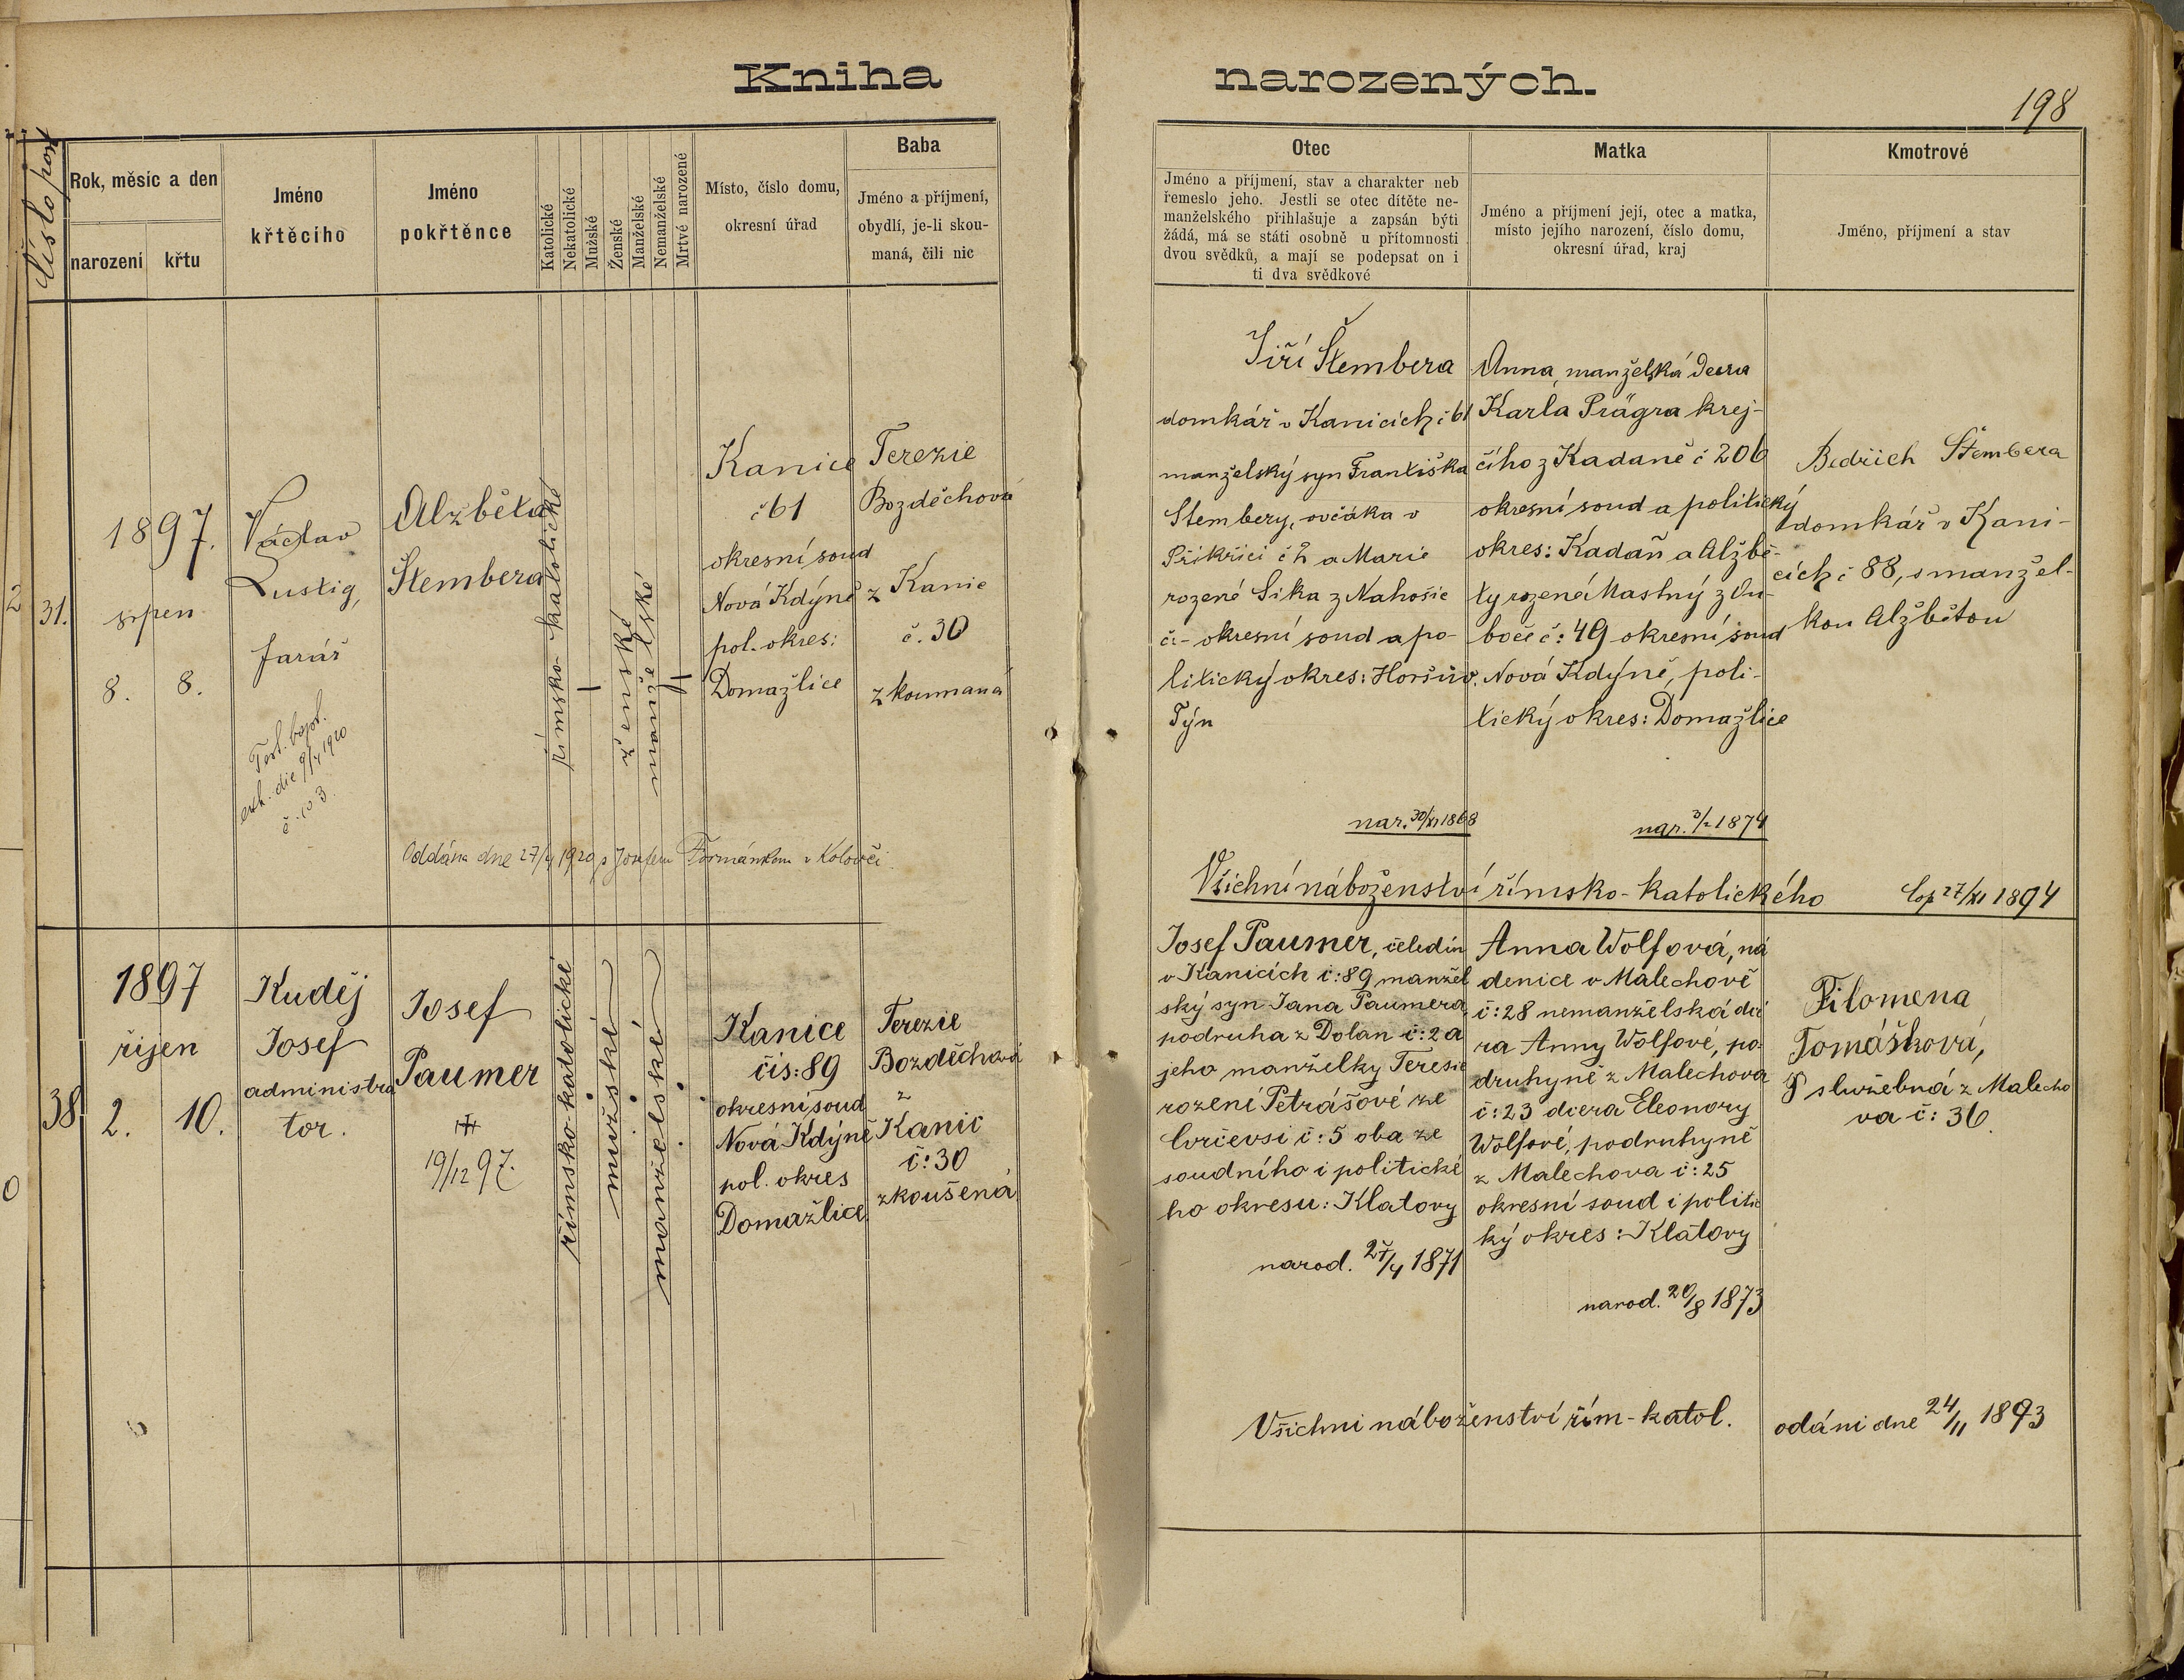 Kniha narozených.
198
Číslo poř.
Rok, měsíc a den
narození
křtu
Jméno
křtěcího
Jméno
pokřtěnce
Katolické
Nekatolické
Mužské
Ženské
Manželské
Nemanželské
Mrtvé narozené
Místo, číslo domu,
okresní úřad
Baba
Jméno a příjmení,
obydlí, je-li skou-
maná, čili nic
Otec
Jméno a příjmení, stav a charakter neb
řemeslo jeho. Jestli se otec dítěte ne-
manželského přihlašuje a zapsán býti
žádá, má se státi osobně u přítomnosti
dvou svědků, a mají se podepsat on i
ti dva svědkové
Matka
Jméno a příjmení její, otec a matka,
místo jejího narození, číslo domu,
okresní úřad, kraj
Kmotrové
Jméno, příjmení a stav
31.
1897.
srpen
8.
8.
Václav
Lustig,
farář
Test. bapt.
exh. die 9/4 1920
Alžběta
Štembera
římsko-katolické
ženské
manželské
Kanice
č 61
okresní soud
Nová Kdýně
pol. okres:
Domažlice
Terezie
Bozděchová
z Kanic
č. 30
zkoumaná
Oddána dne 27/4 1920 s Josefem Formánkem v Kolovči
Jiří Štembera
domkář v Kanicích č 61
manželský syn Františka
Štembery, ovčáka v
Přikřici č 2 a Marie
rozené Sika z Nahošic
č:- okresní soud a po-
litický okres: Horšův.
Týn
nar. 30/XI 1868
Anna, manželská dcera
Karla Prägra krej-
čího z Kadaně č 206
okresní soud a politický
okres: Kadaň a Alžbě-
ty rozená Mastný z Ou-
boče č: 49 okresní soud
Nová Kdýně, poli-
tický okres: Domažlice
nar. 3/2 1874
Bedřich Štembera
domkář v Kani-
cích č 88, s manžel-
kou Alžbětou
Všichní náboženství římsko-katolického
Cop 27/XI 1894
38.
1897
říjen
2.
10.
Kuděj
Josef
administra
tor.
Josef
Paumer
19/12 97.
římsko-katolické
mužské
manželské
Kanice
čís: 89
okresní soud
Nová Kdýně
pol. okres
Domažlice
Terezie
Bozděchová
z
Kanic
č: 30
zkoušená
Josef Paumer, čeledín
v Kanicích č: 89 manžel
ský syn Jana Paumera,
podruha z Dolan č: 2 a
jeho manželky Teresie
rození Petrášové ze
Cvrčevsi č: 5 oba ze
soudního i politické
ho okresu: Klatovy
narod. 27/4 1871
Anna Wolfová, ná
denice v Malechově
č: 28 nemanželská dce
ra Anny Wolfové, po-
druhyně z Malechova
č: 23 dcera Eleonory
Wolfové, podruhyně
z Malechova č: 25
okresní soud i politic
ký okres: Klatovy
narod. 20/8 1873
Filomena
Tomášková,
služebná z Malecho
va č: 36.
Všichni náboženství řím-katol.
odáni dne 24/11 1893